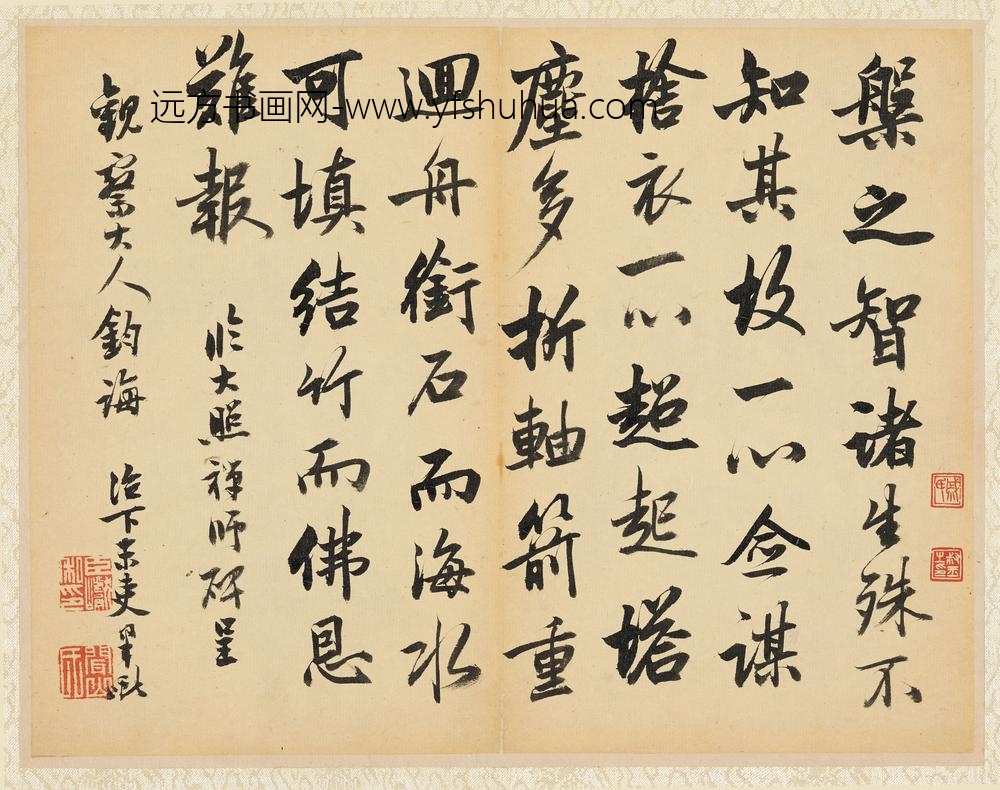 槃之智諸生殊不
知其故一心僉謀
捨衣一心超起塔
塵多折軸箭重
迴舟銜石而海水
可填結竹而佛恩
難報
臨大照禪師碑呈
觀察大人鈞誨 治下末吏
远方书画网-www.yfshuhua.com